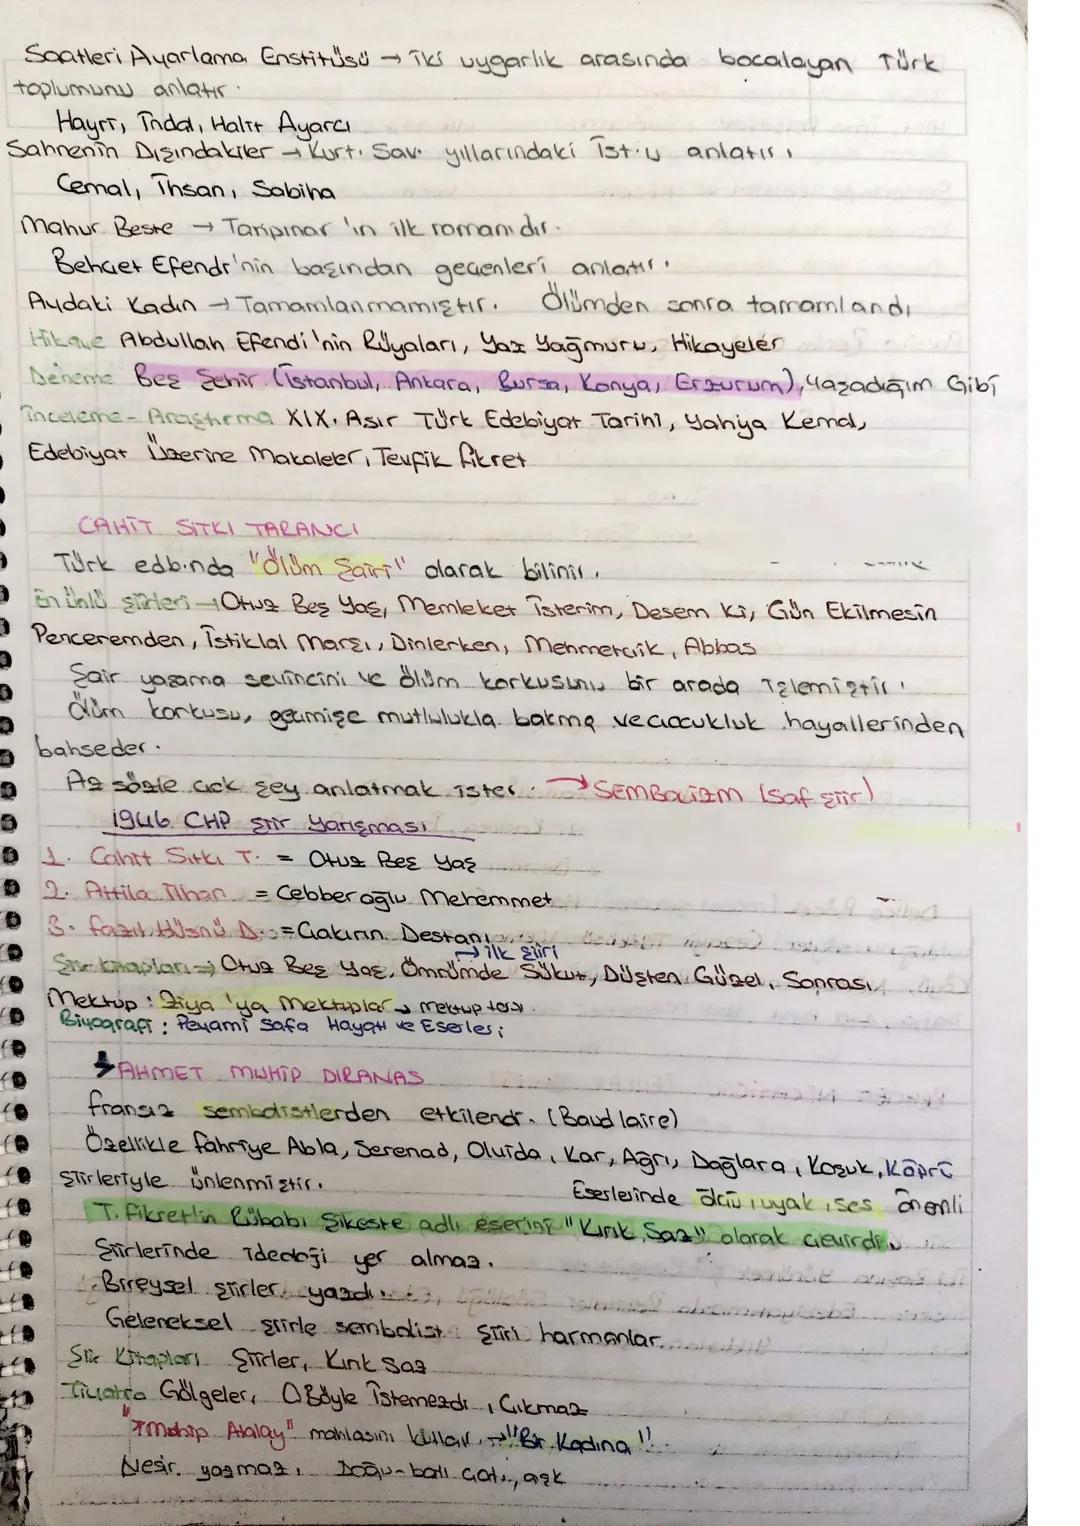 Saatleri Ayarlama Enstitüsü → iki uygarlık arasında bocalayan Türk
toplumunu anlatır.
Hayri, İrdal, Halit Ayarcı
Sahnenin Dışındakiler → Kurt. Sav. yıllarındaki İst.'u anlatır.
Cemal, İhsan, Sabiha
Mahur Beste → Tanpınar'ın ilk romanıdır.
Behçet Efendi'nin başından geçenleri anlatır.
Aydaki Kadın → Tamamlanmamıştır. Ölümden sonra tamamlandı
Hikaye Abdullah Efendi'nin Rüyaları, Yaz Yağmuru, Hikayeler
Deneme Beş Şehir (İstanbul, Ankara, Bursa, Konya, Erzurum), Yaşadığım Gibi
İnceleme-Araştırma XIX. Asır Türk Edebiyat Tarihi, Yahya Kemal,
Edebiyat Üzerine Makaleler, Tevfik Fikret
CAHİT SITKI TARANCI
Türk edb.nda "Ölüm Şairi" olarak bilinir.
En ünlü şiirleri → Otuz Beş Yaş, Memleket İsterim, Desem Ki, Gün Ekilmesin
Penceremden, İstiklal Marşı, Dinlerken, Mehmetçik, Abbas
Şair yaşama sevincini ve ölüm korkusunu bir arada işlemiştir.
Ölüm korkusu, geçmişe mutlulukla bakma ve çocukluk hayallerinden
bahseder.
Az sözle çok şey anlatmak ister. → SEMBOLİZM (saf şiir)
1946 CHP Şiir Yarışması
1. Cahit Sıtkı T. = Otuz Beş Yaş
2. Attila İlhan = Cebberoğlu Mehemmet
3. Fazıl Hüsnü D. = Çakırın Destanı
→ ilk şiiri
Şiir kitapları → Otuz Beş Yaş, Ömrümde Sükut, Düşten Güzel, Sonrası
Mektup: Ziya'ya Mektuplar →
Biyografi: Peyami Safa Hayatı ve Eserleri
AHMET MUHİP DIRANAS
Fransız sembolistlerden etkilendi. (Baudlaire)
Özellikle Fahriye Abla, Serenad, Olvido, Kar, Ağrı, Dağlara, Koşuk, Köprü
şiirleriyle ünlenmiştir. Eserlerinde ölçü, uyak, ses önemli
T. Fikret'in Rübabı Şikeste adlı eserini "Kırık Saz" olarak çevirdi.
Şiirlerinde ideoloji yer almaz.
Bireysel şiirler yazdı.
Geleneksel şiirle sembolist şiiri harmanlar.
Şiir Kitapları Şiirler, Kırık Saz
Tiyatro Gölgeler, O Böyle İstemezdi, Çıkmaz
"Muhip Atalay" mahlasını kullanır. → "Bir Kadına".
Nesir yazmaz. Doğu-batı çatı., aşk